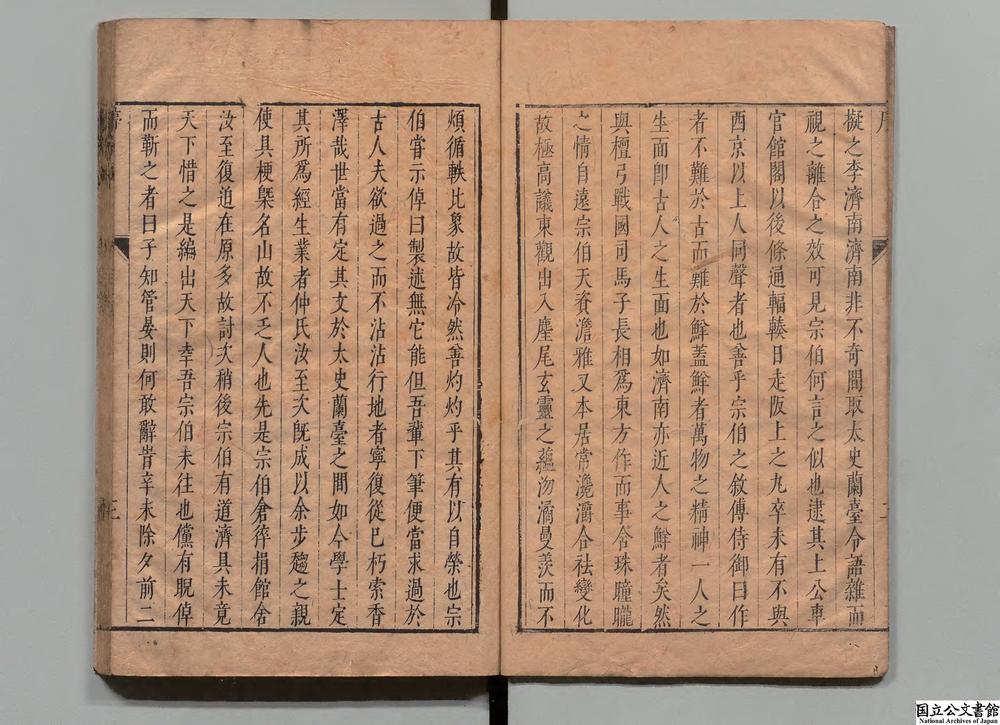 擬之李濟南濟南非不奇間取太史蘭臺令語雜而
視之離合之效可見宗伯何言之似也逮其上公車
官館閣以後條通輻輳日走阪上之九卒未有不與
西京以上人同聲者也善乎宗伯之敘傅侍御曰作
者不難於古而難於鮮蓋鮮者萬物之精神一人之
生面卽古人之生面也如濟南亦近人之鮮者矣然
與檀弓戰國司馬子長相爲東方作而事含珠曈曨
之情自遠宗伯天資澹雅又本居常瀺灂合祛變化
故極高議東觀出入麈尾玄靈之蘊沕潏曼羨而不
煩循軼比象故皆冷然善灼灼乎其有以自榮也宗
伯嘗示倬曰製述無它能但吾輩下筆便當求過於
古人夫欲過之而不沾沾行地者寧復從已朽索香
澤哉世當有定其文於太史蘭臺之間如今學士定
其所爲經生業者仲氏汝至次旣成以余步趨之親
使具梗槩名山故不乏人也先是宗伯倉猝捐館舍
汝至復迫在原多故討次稍後宗伯有道濟具未竟
天下惜之是編出天下幸吾宗伯未往也儻有睨倬
而靳之者曰子知管晏則何敢辭昔辛未除夕前二
序
二
三
国立公文書館
National Archives of Japan